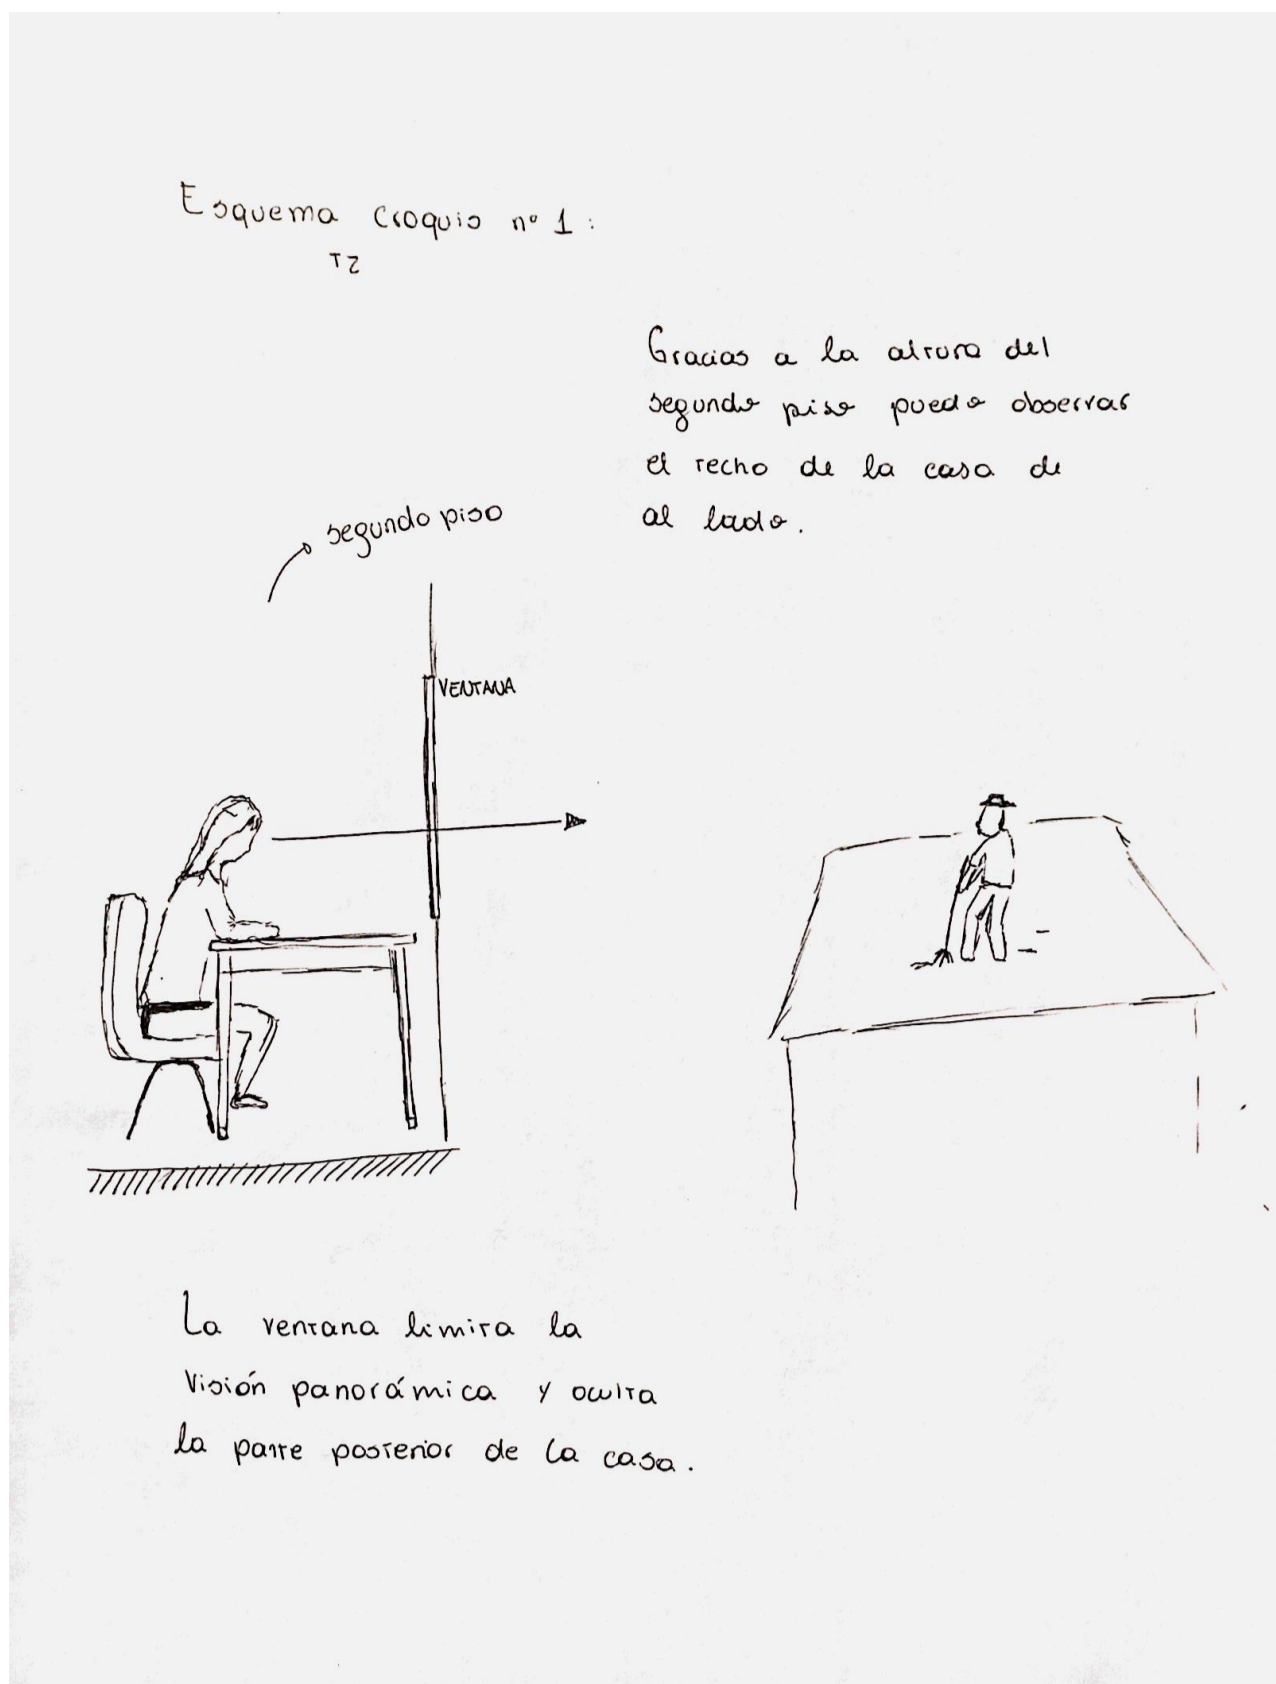 Esquema croquis nº 1:
T2
Gracias a la altura del
segundo piso puedo observar
el techo de la casa de
al lado.
segundo piso
VENTANA
La ventana limita la
visión panorámica y oculta
la parte posterior de la casa.